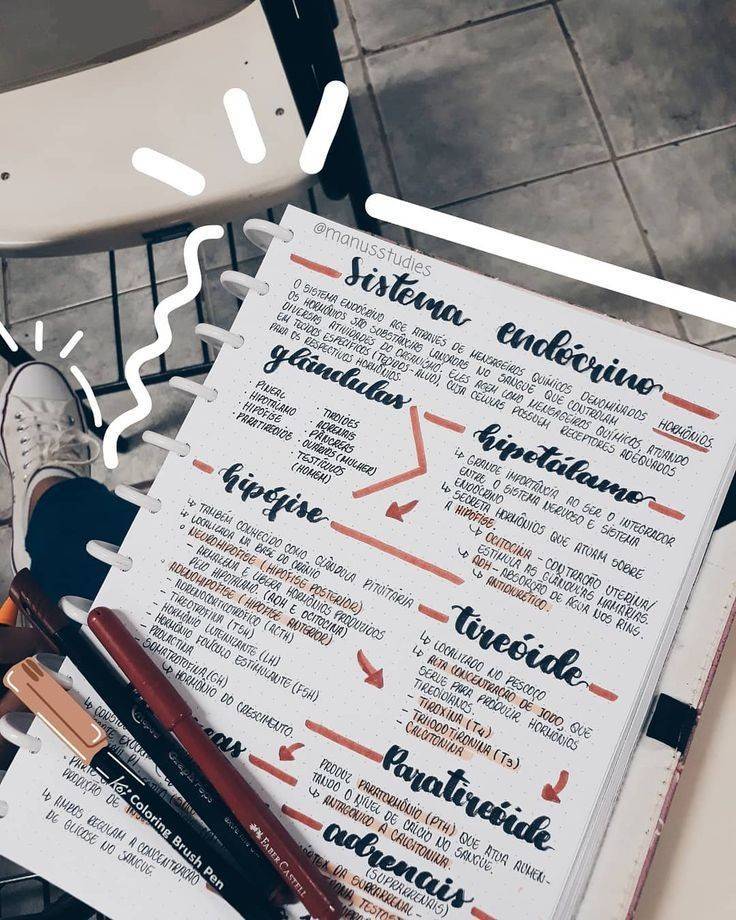 @manusstudies
Sistema endócrino
O SISTEMA ENDÓCRINO AGE ATRAVÉS DE MENSAGEIROS QUÍMICOS DENOMINADOS HORMÔNIOS.
OS HORMÔNIOS SÃO SUBSTÂNCIAS LANÇADAS NO SANGUE QUE CONTROLAM
DIVERSAS ATIVIDADES DO ORGANISMO. ELES AGEM COMO MENSAGEIROS QUÍMICOS, ATUANDO
EM TECIDOS ESPECÍFICOS (TECIDOS-ALVO), CUJA CÉLULAS POSSUEM RECEPTORES ADEQUADOS
PARA OS RESPECTIVOS HORMÔNIOS.
glândulas
· PINEAL
· HIPOTÁLAMO
· HIPÓFISE
· PARATIREOIDES
TIROIDES
ADRENAIS
PÂNCREAS
OVÁRIOS (MULHER)
TESTÍCULOS
(HOMEM)
hipotálamo
↳ GRANDE IMPORTÂNCIA AO SER O INTEGRADOR
ENTRE O SISTEMA NERVOSO E SISTEMA
ENDÓCRINO
↳ SECRETA HORMÔNIOS QUE ATUAM SOBRE
A HIPÓFISE
↳ OCITOCINA - CONTRAÇÃO UTERINA/
ESTIMULA AS GLÂNDULAS MAMÁRIAS.
↳ ADH - ABSORÇÃO DE ÁGUA NOS RINS.
↳ ANTIDIURÉTICO
hipófise
↳ TAMBÉM CONHECIDO COMO GLÂNDULA PITUITÁRIA
↳ LOCALIZADA NA BASE DO CRÂNIO
NEUROHIPÓFISE (HIPÓFISE POSTERIOR)
ARMAZENA E LIBERA HORMÔNIOS PRODUZIDOS
PELO HIPOTÁLAMO. (ADH E OCITOCINA)
ADENOHIPÓFISE (HIPÓFISE ANTERIOR)
- ADRENOCORTICOTRÓFICO (ACTH)
- TIREOTROFINA (TSH)
- HORMÔNIO LUTEINIZANTE (LH)
- HORMÔNIO FOLÍCULO ESTIMULANTE (FSH)
- PROLACTINA
- SOMATROTOFINA (GH)
↳ HORMÔNIO DO CRESCIMENTO.
tireóide
↳ LOCALIZADO NO PESCOÇO
↳ ALTA CONCENTRAÇÃO DE IODO, QUE
SERVE PARA PRODUZIR HORMÔNIOS
TIREOIDIANOS.
- TIROXINA (T4)
- TRIIODOTIRONINA (T3)
- CALCITONINA
Paratireóide
↳ PRODUZ PARATORMÔNIO (PTH) QUE ATUA AUMEN-
TANDO O NÍVEL DE CÁLCIO NO SANGUE.
↳ ANTAGÔNICO A CALCITONINA
adrenais
(SUPRARRENAIS)
DA SUPRARRENAL-
PRODUÇÃO DE
↳ AMBOS REGULAM A CONCENTRAÇÃO
DE GLICOSE NO SANGUE.
Coloring Brush Pen
FABER-CASTELL